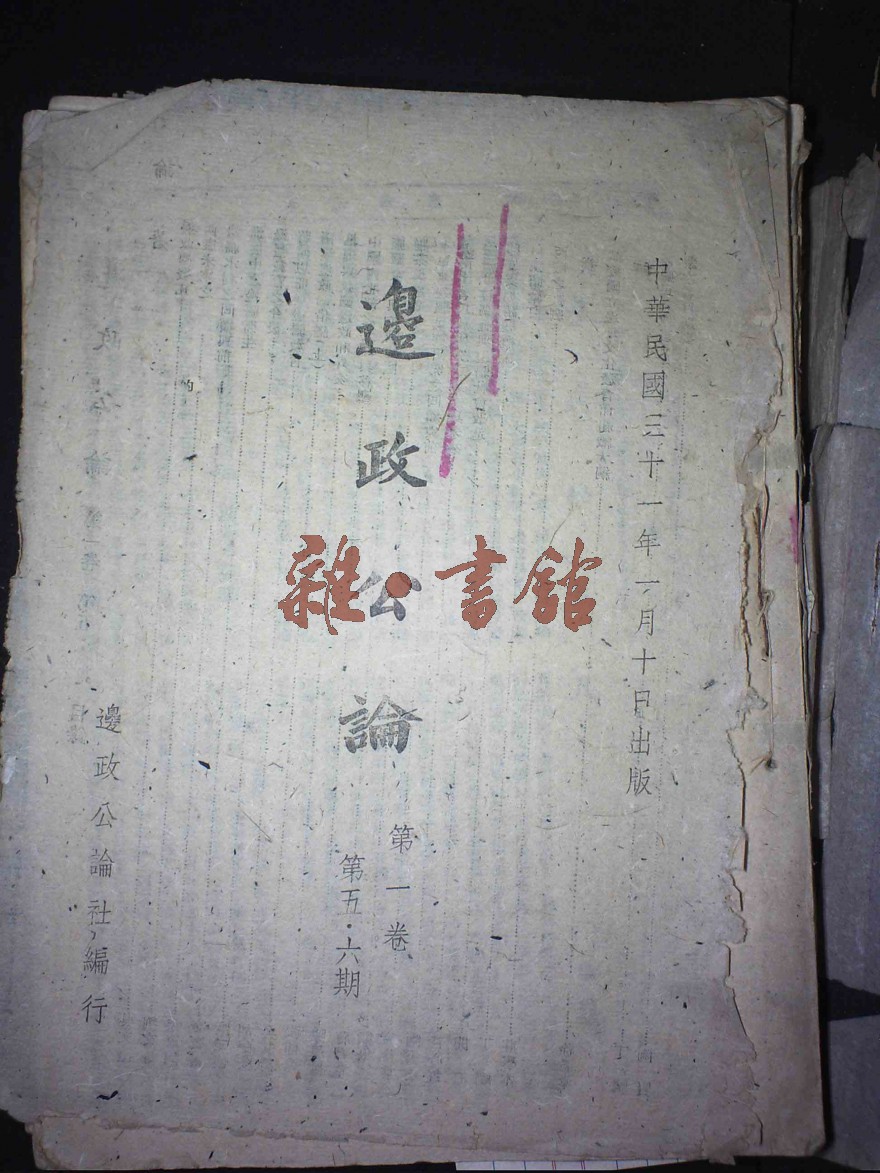 中華民國三十一年一月十日出版
邊政公論
第一卷
第五·六期
邊政公論社編行
雜·書館